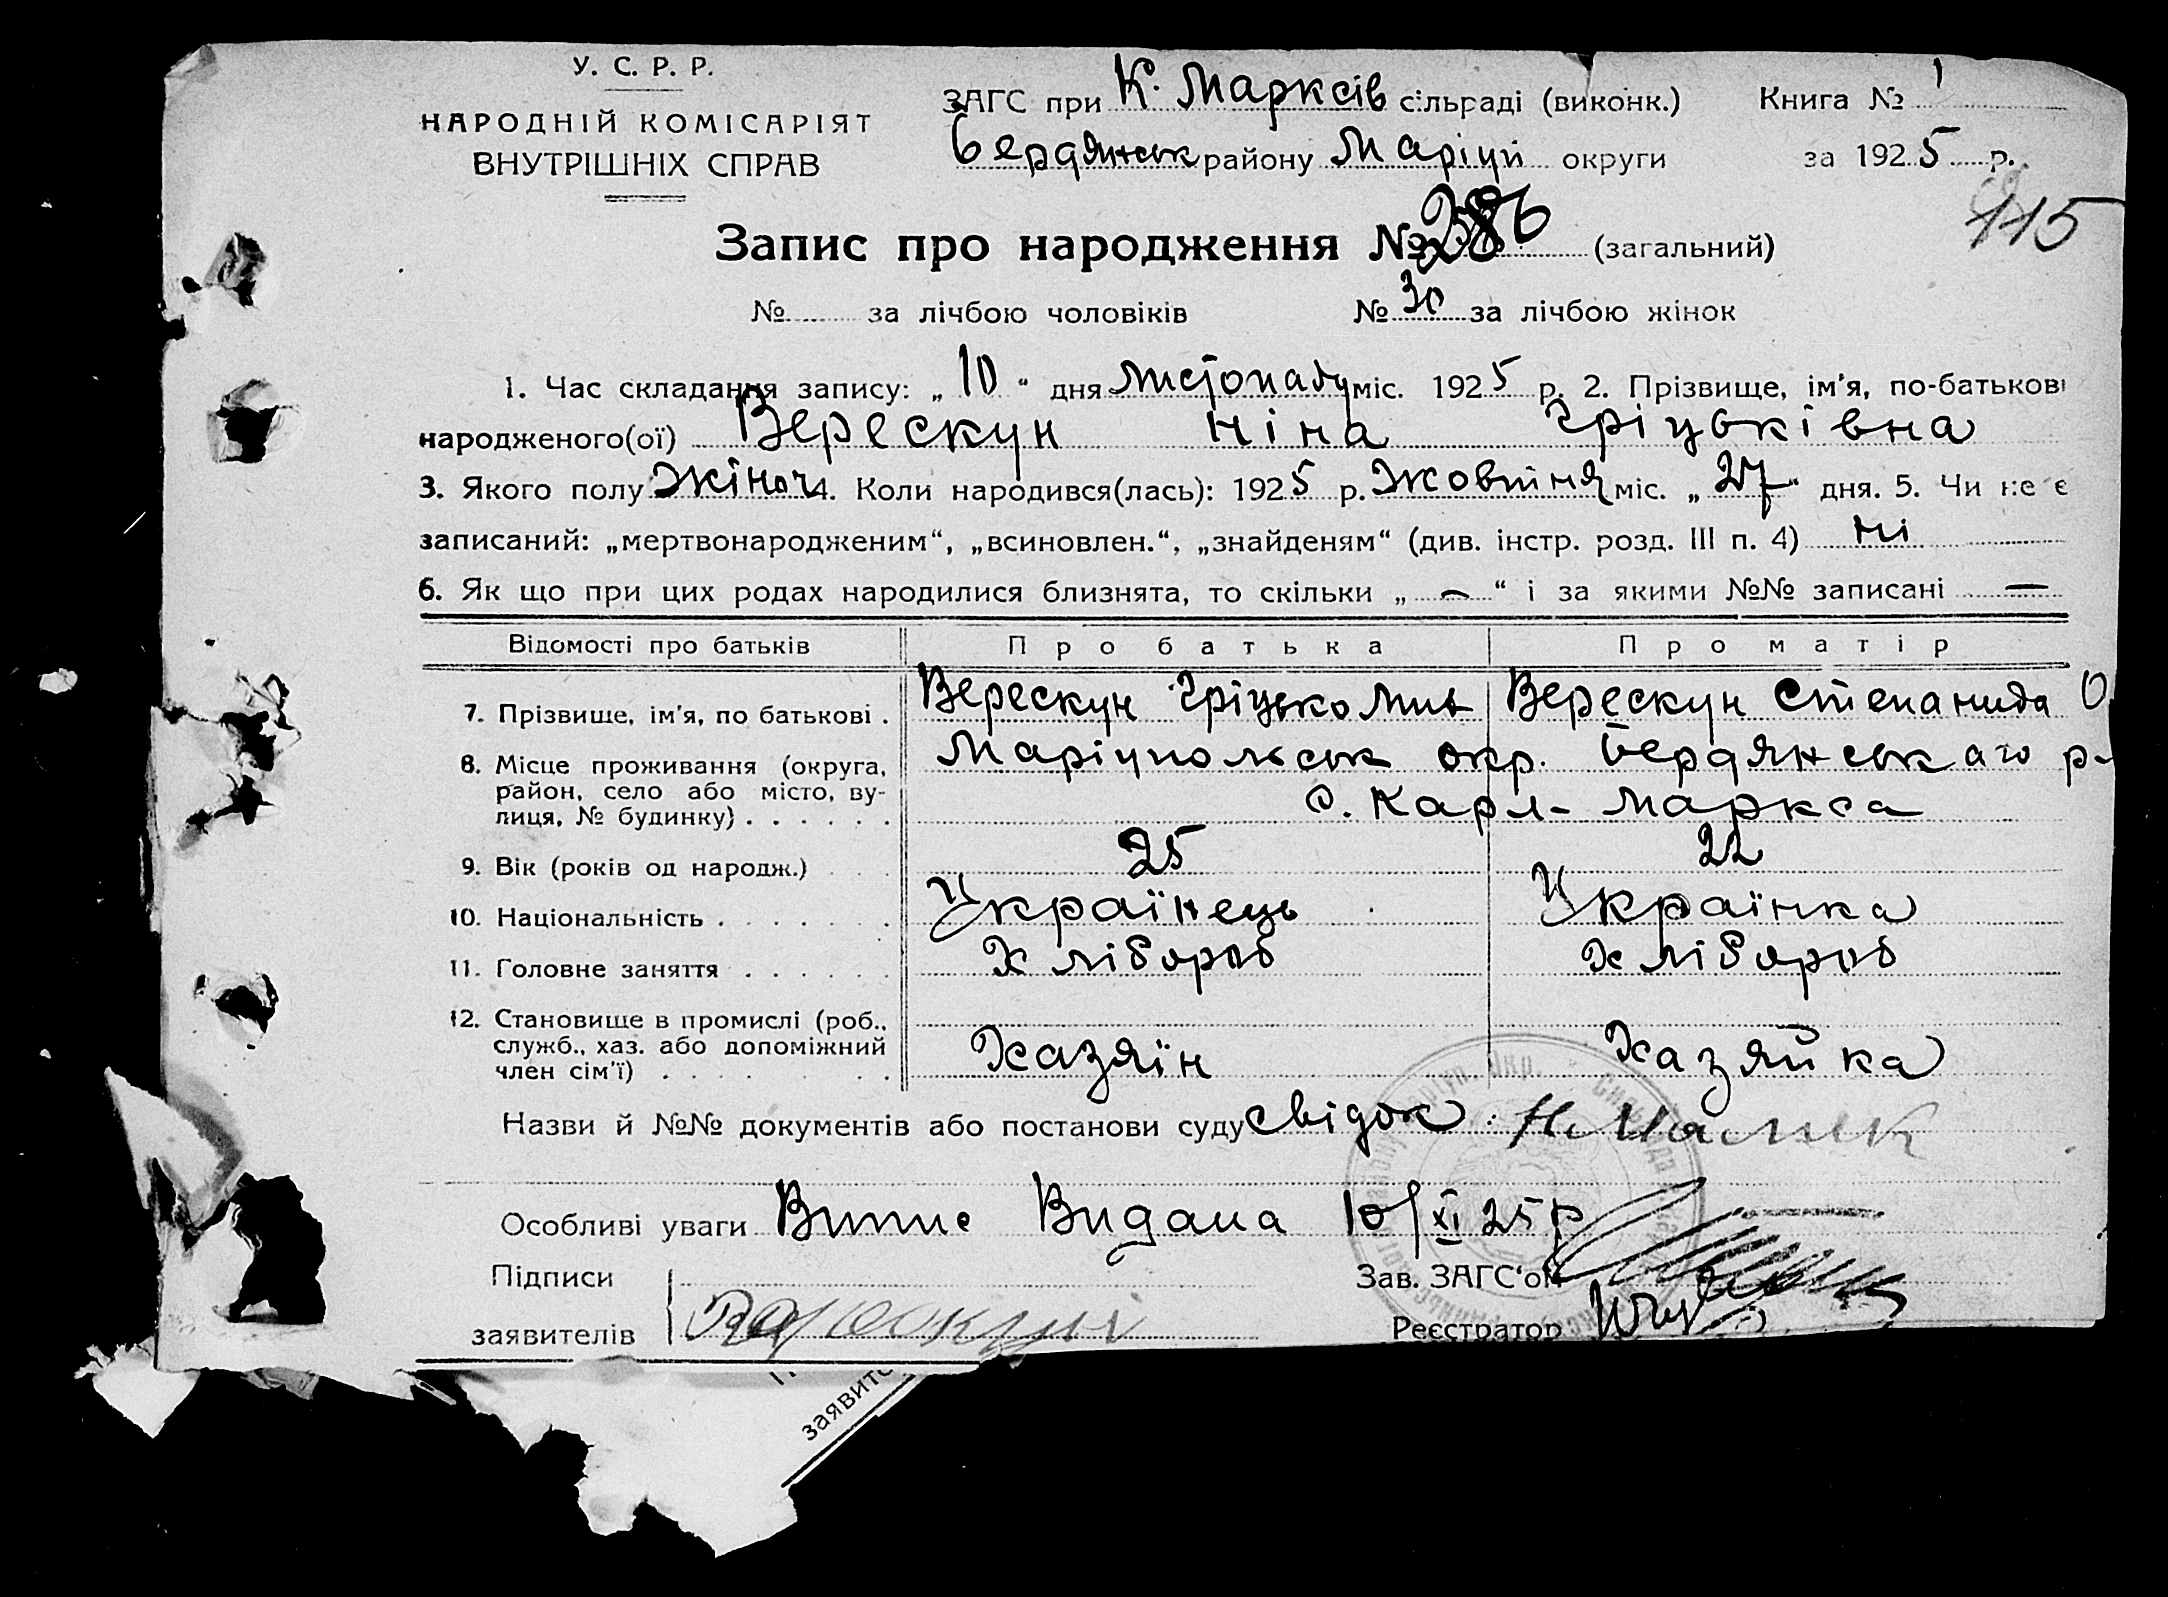 У. С. Р. Р.
НАРОДНІЙ КОМІСАРІЯТ
ВНУТРІШНІХ СПРАВ
ЗАГС при К. Марксів сільраді (виконк.) Книга № 1
Бердянськ району Маріуп округи за 1925 р.
115
Запис про народження № 286 (загальний)
№ за лічбою чоловіків № 30 за лічбою жінок
1. Час складання запису: „ 10 “ дня листопаду міс. 1925 р. 2. Прізвище, ім'я, по-батькові
народженого(ої) Верескун Ніна Гріцьківна
3. Якого полу жіноч 4. Коли народився(лась): 1925 р. Жовтня міс. „ 27 “ дня. 5. Чи не є
записаний: „мертвонародженим“, „всиновлен.“, „знайденям“ (див. інстр. розд. III п. 4) ні
6. Як що при цих родах народилися близнята, то скільки „ — “ і за якими №№ записані —
Відомості про батьків Про батька Про матір
7. Прізвище, ім'я, по батькові . Верескун Гріцько Мит Верескун Степанида О
8. Місце проживання (округа, Маріупольськ окр. Бердянськаго р-
район, село або місто, ву- с. Карл-Маркса
лиця, № будинку) . . . . . .
9. Вік (років од народж.) . . . 25 22
10. Національність . . . . . . . Українець Українка
11. Головне заняття . . . . . . Хлібороб Хлібороб
12. Становище в промислі (роб.,
служб., хаз. або допоміжний Хазяїн Хазяйка
член сім'ї) . . . . . . .
Назви й №№ документів або постанови суду свідок: Н. Малик
Особливі уваги Випис Видана 10/XI 25 р
Підписи Зав. ЗАГС'ом
заявителів Реєстратор
заявите